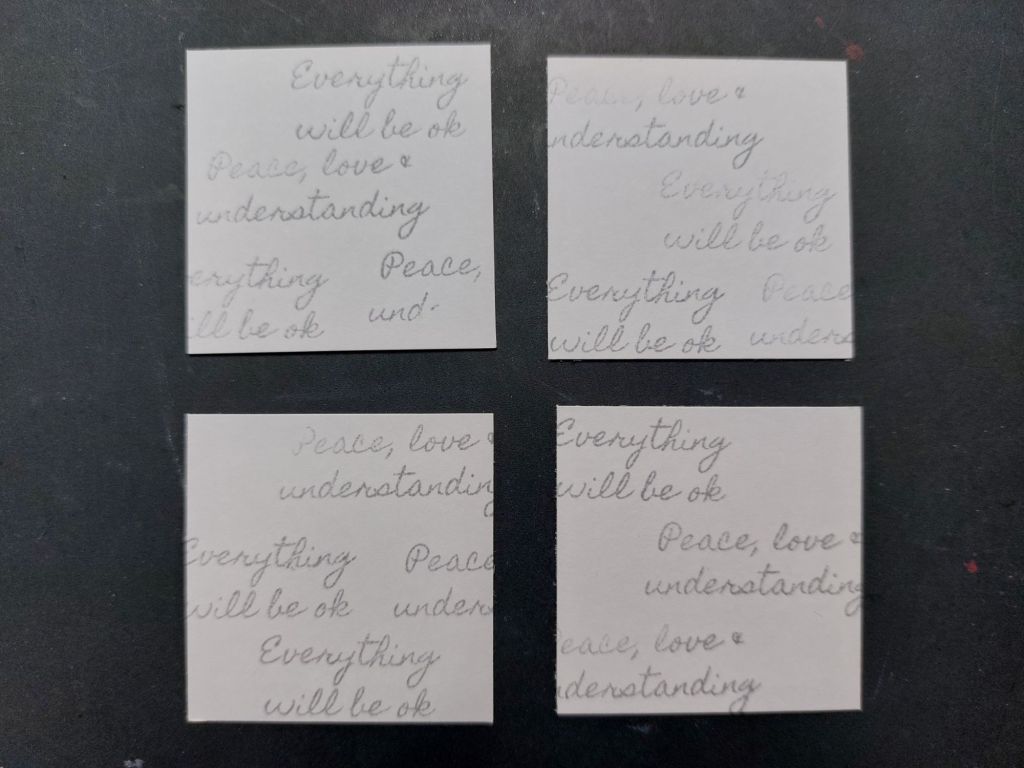 Everything
will be ok
Peace, love &
understanding
erything
ill be ok
Peace,
und
Peace, love &
nderstanding
Everything
will be ok
Everything
will be ok
Peace
unders
Peace, love &
understandin
Everything
will be ok
Peace
unders
Everything
will be ok
Everything
will be ok
Peace, love &
understanding
eace, love &
derstanding